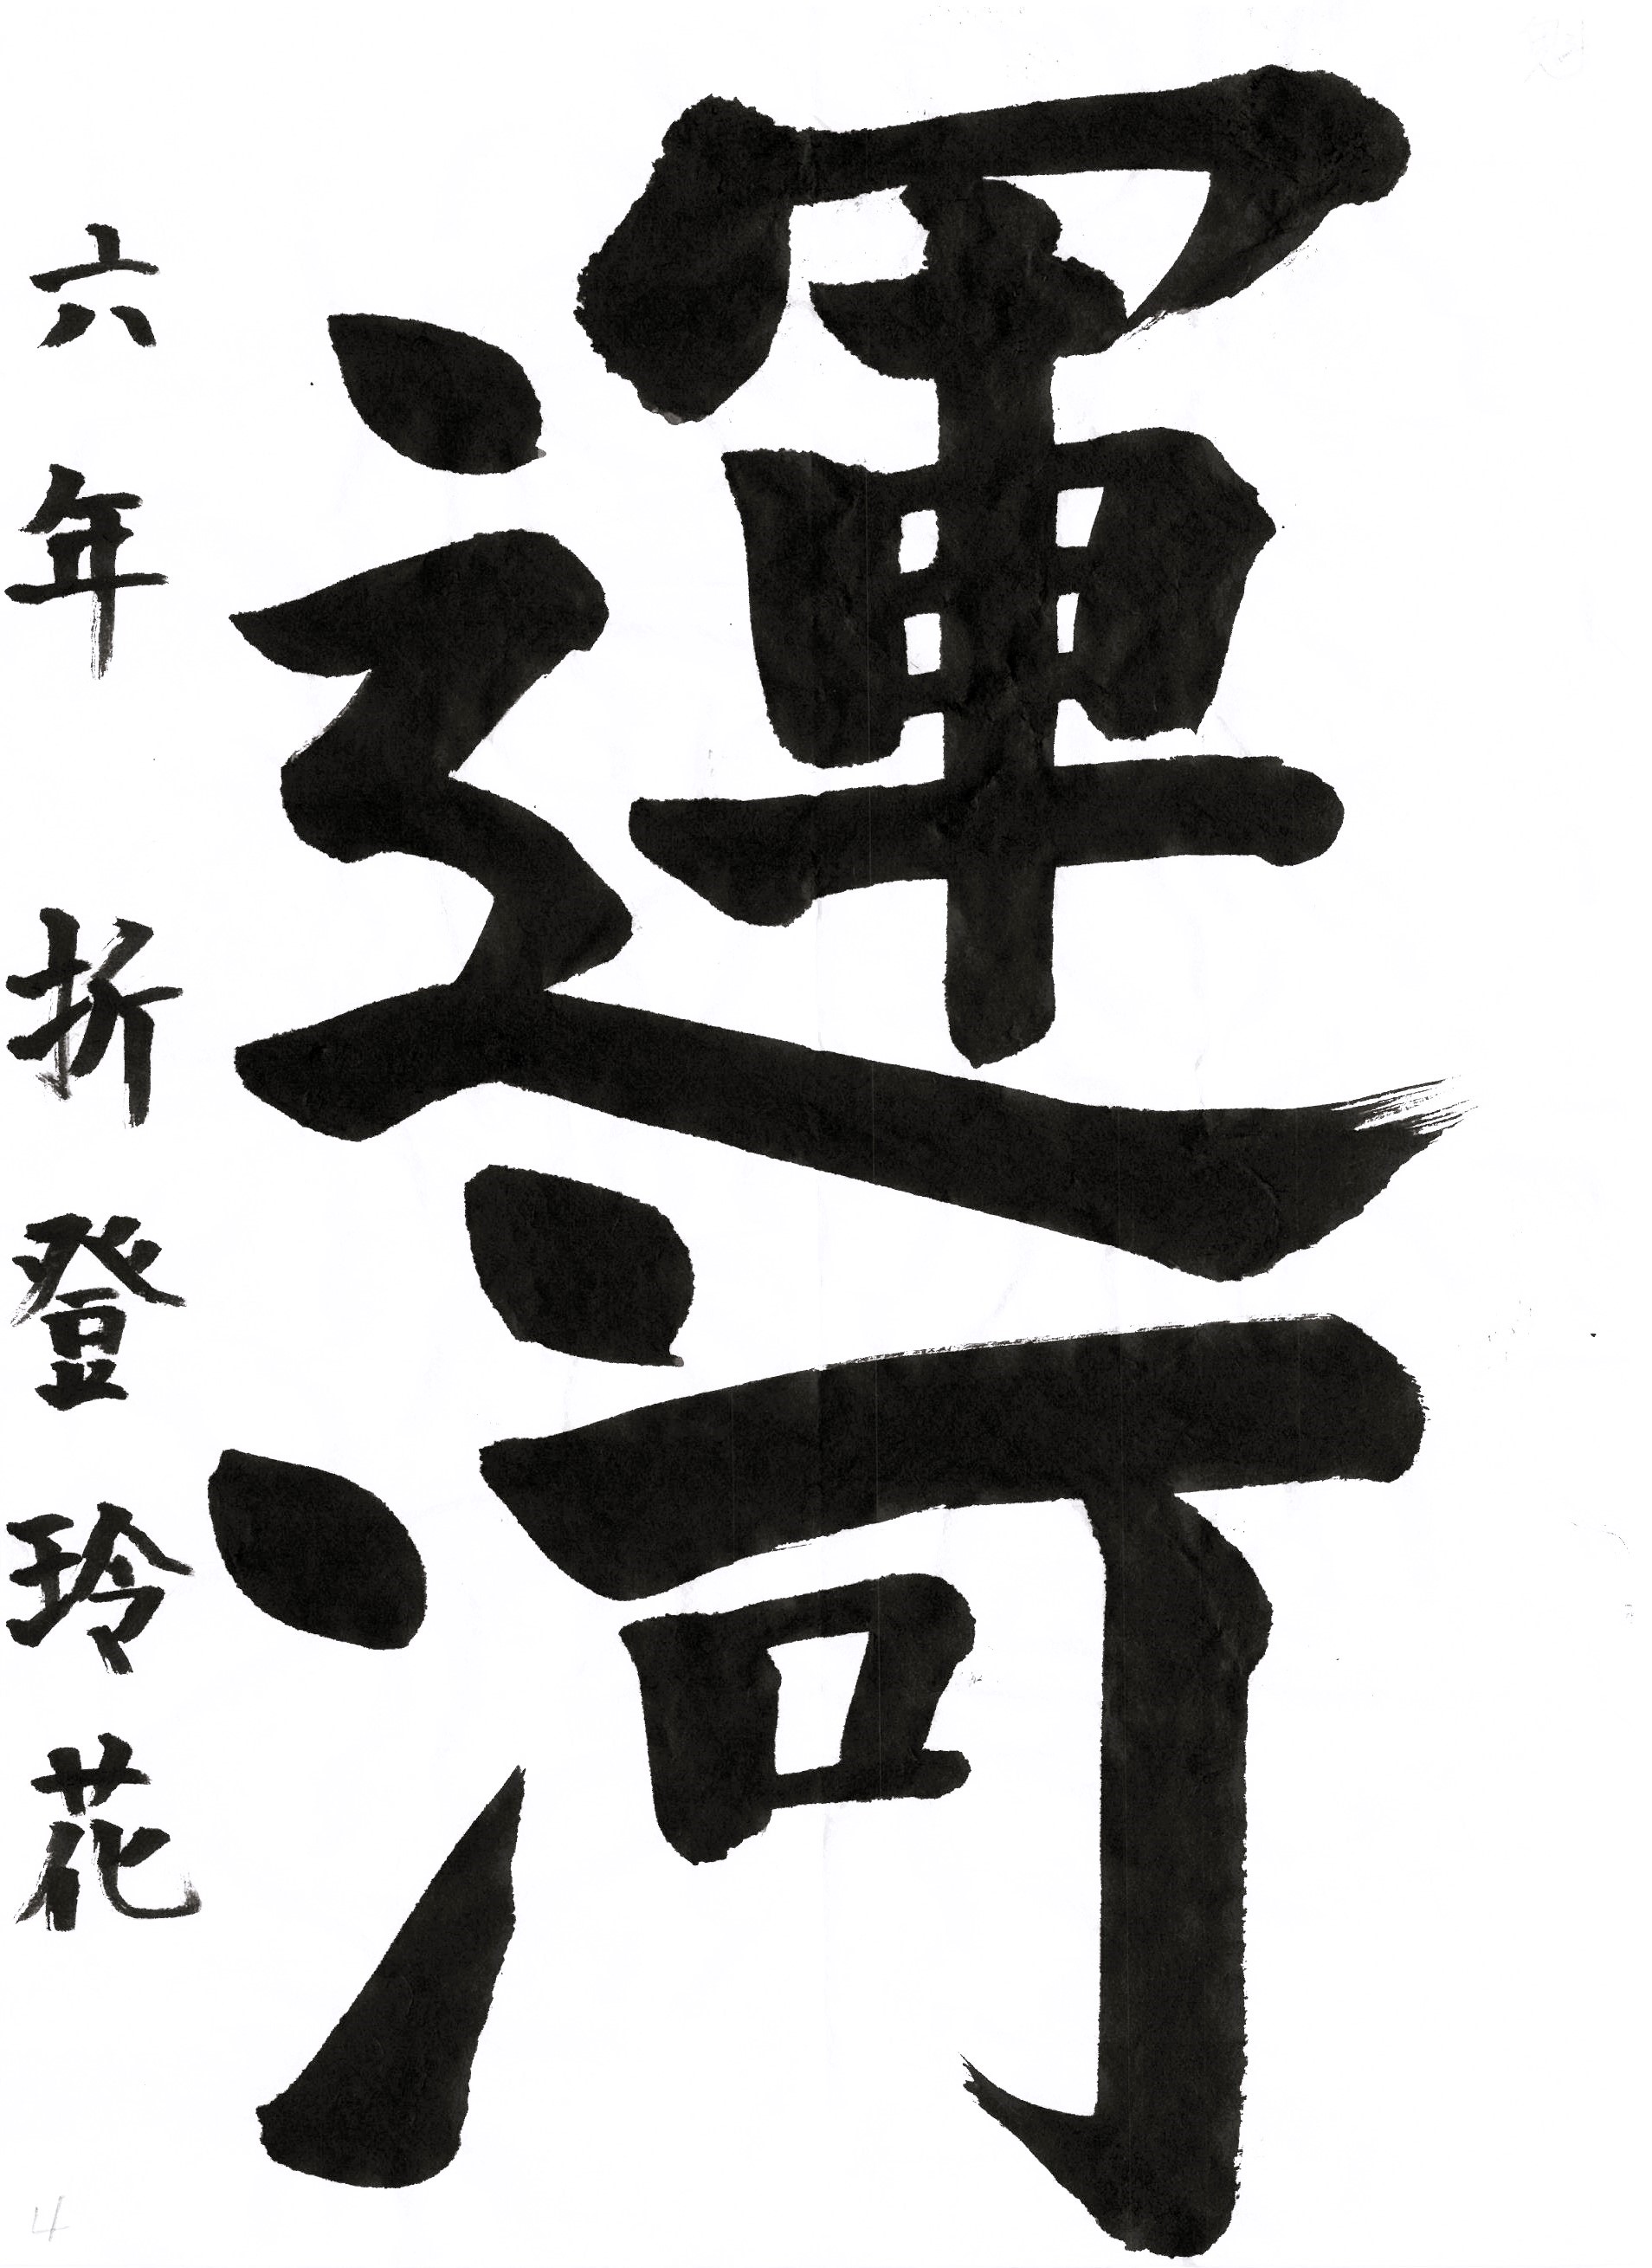 運河
六年 折登玲花
4